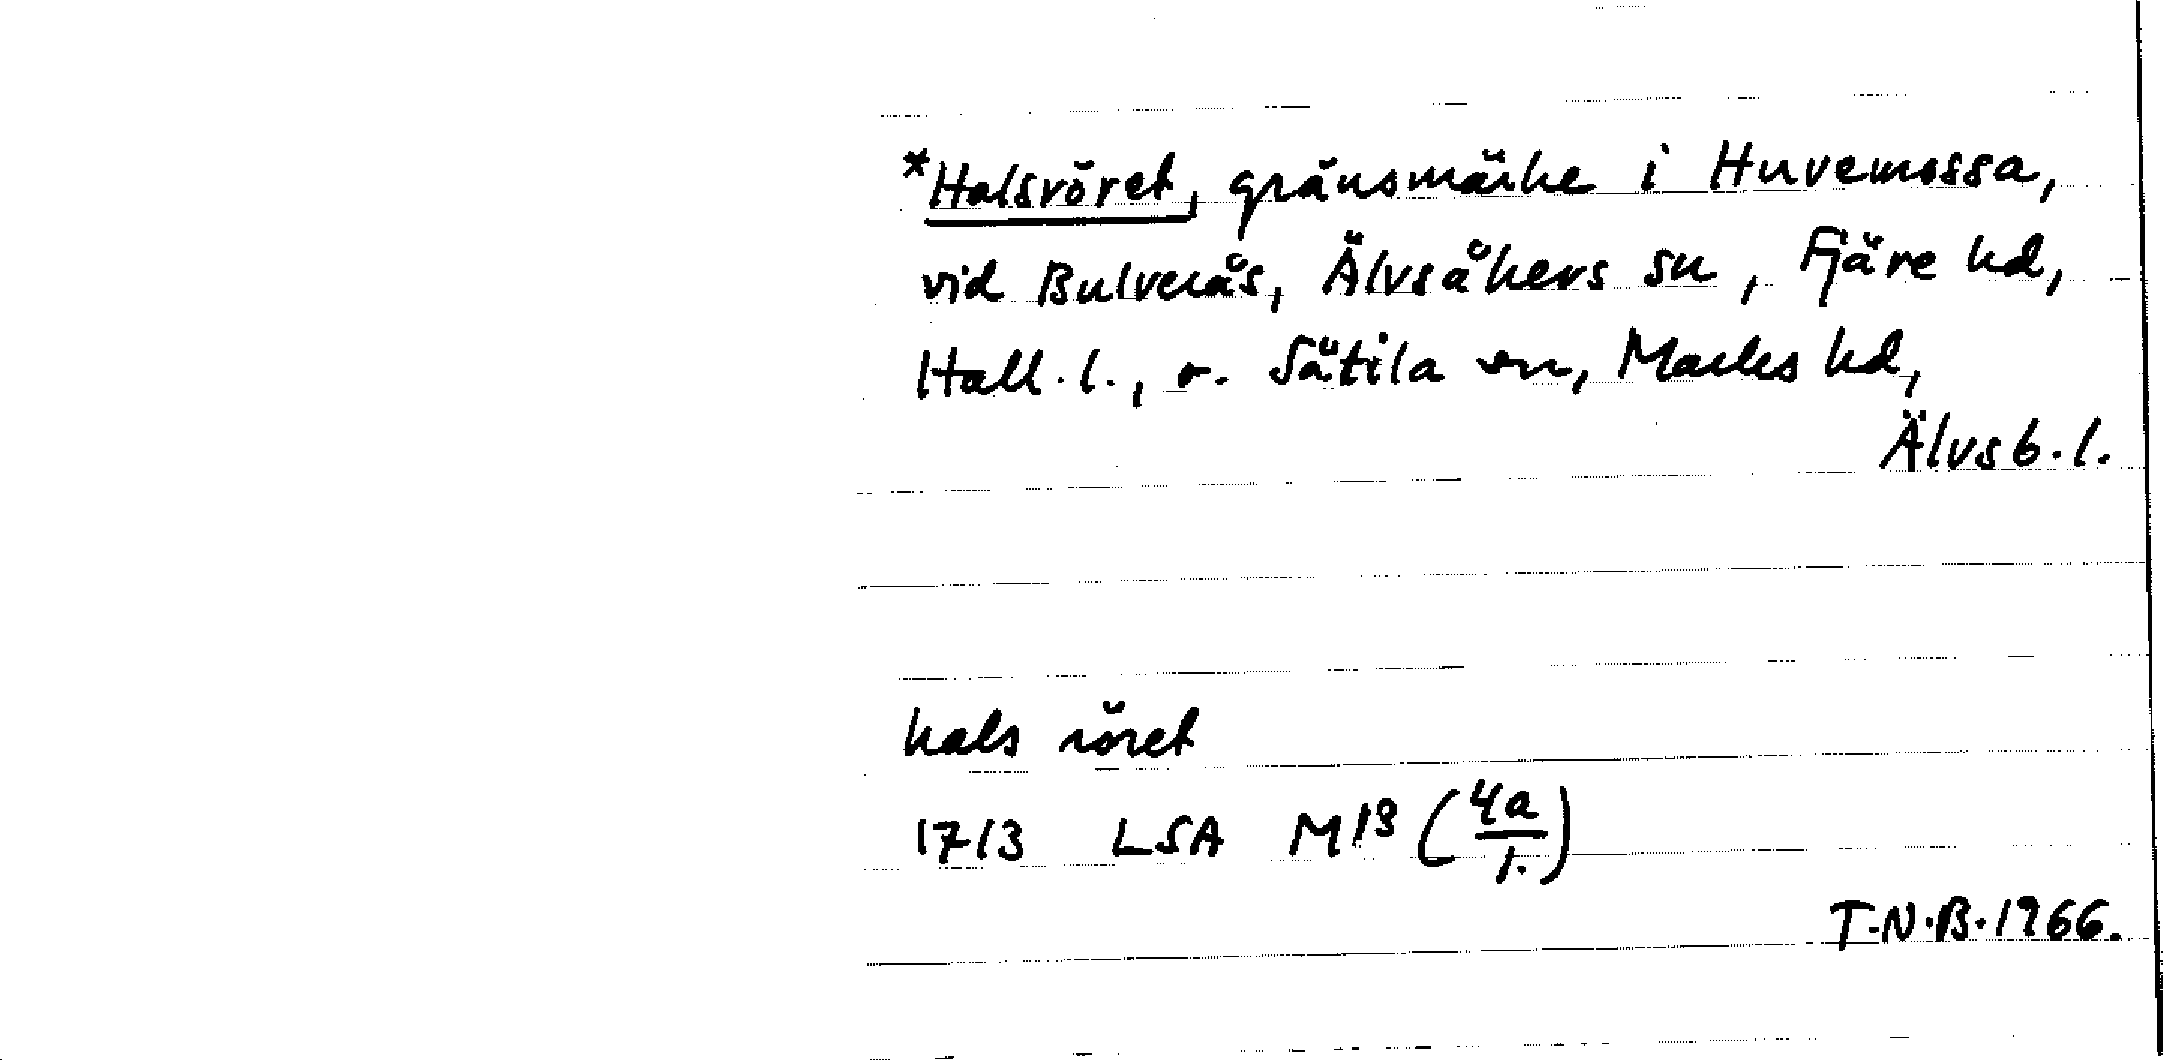 *Halsröret, gränsmärke i Huvemossa,
vid Bulverås, Älvsåkers sn, Fjäre hd,
Hall. l., o. Sätila sn, Marks hd,
Älvsb. l.
hals röret
1713 LSA M13 (4a/1.)
T.N.B. 1966.